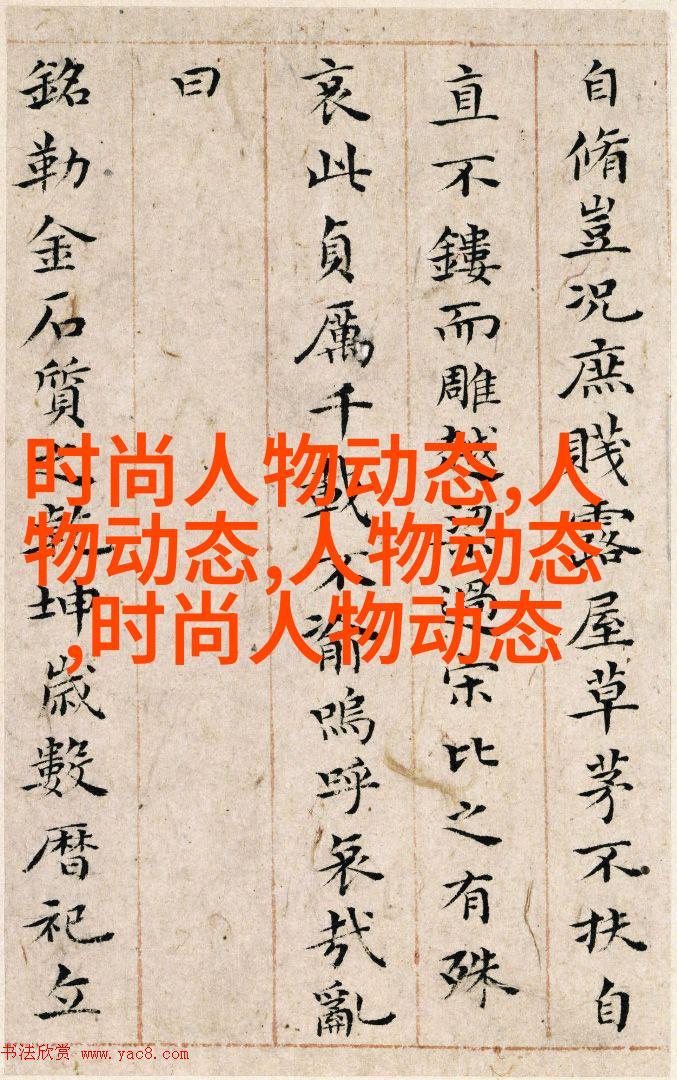 自脩豈況庶賤露屋草茅不扶自
直不鏤而雕越梁過宋比之有殊
哀此貞厲千載不渝嗚呼哀哉亂
曰
銘勒金石質之乾坤歲數曆祀立
时尚人物动态,人
物动态,人物动态
,时尚人物动态
书法欣赏 www.yac8.com